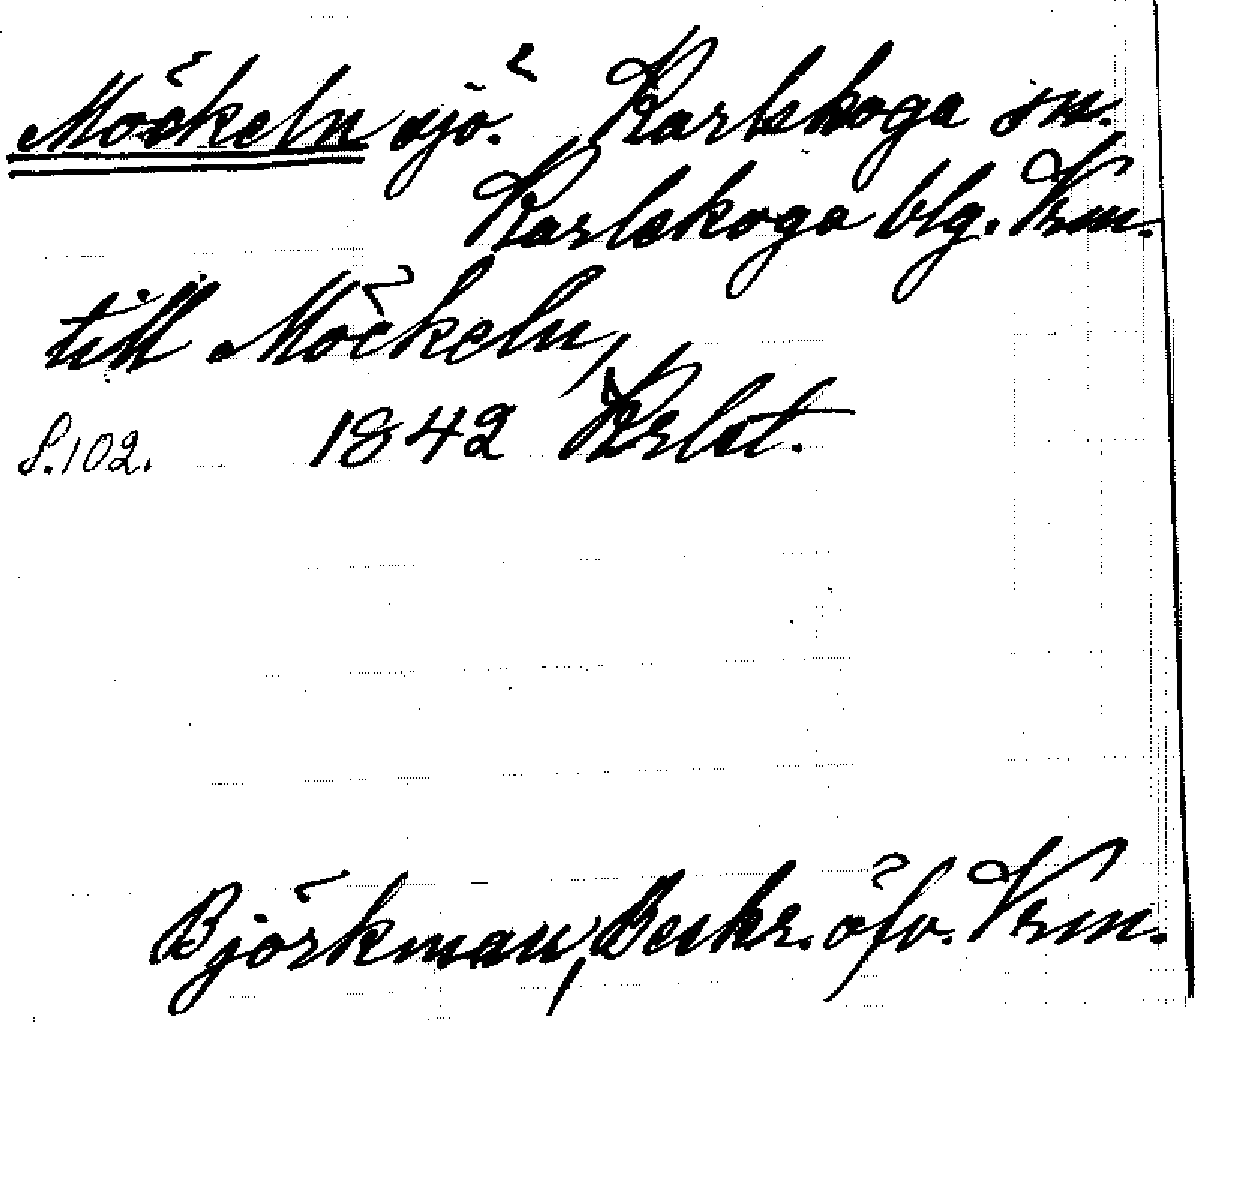 Möckeln sjö. Karlskoga sn.
Karlskoga blg. Vrm.
till Möckeln,
S. 102. 1842 Krlst.
Björkman, Beskr. öfv. Vrm.